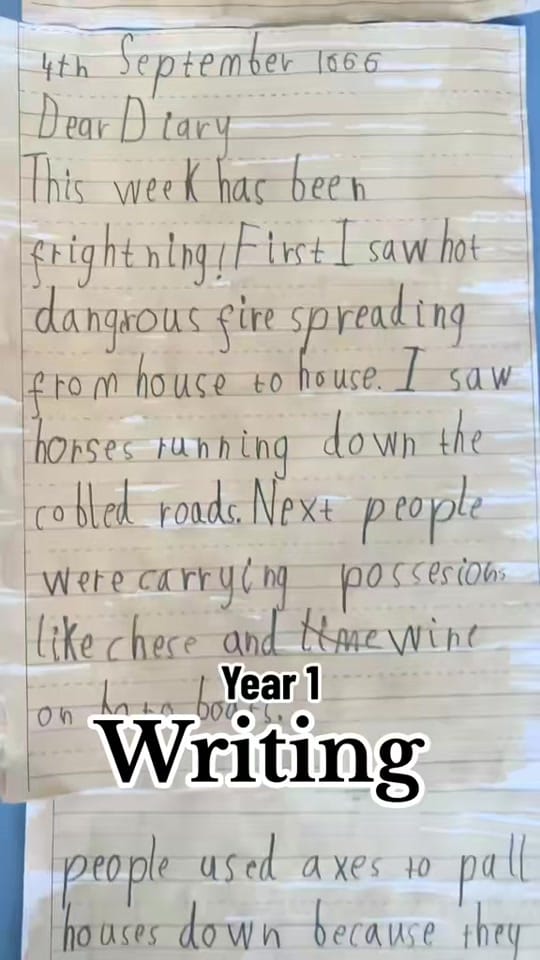 4th September 1666
Dear Diary
This week has been
frightning! First I saw hot
dangrous fire spreading
from house to house. I saw
horses running down the
cobled roads. Next people
were carrying possesions
like chese and time wine
Year 1
on boats.
Writing
people used axes to pall
houses down because they